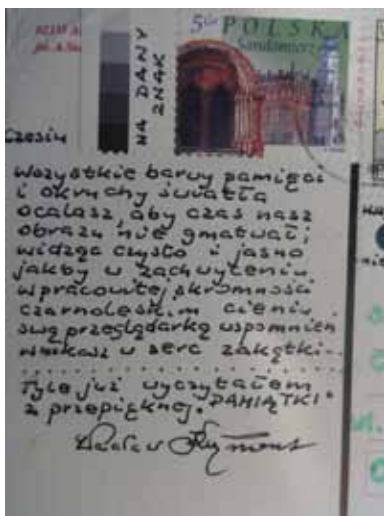 NA DANY
ZNAK
5 GR POLSKA
Sandomierz
Czesiu
wszystkie barwy pamięci
i okruchy światła
ocalasz, aby czas nasz
obrazu nie gmatwał;
widząc czysto i jasno
jakby w zachwyceniu
w pracowitej skromności
czarnoleskim cieniu
swą przeglądarką wspomnień
wnikasz w serc zakątki...
Tyle już wyczytałem
z przepięknej „PAMIĄTKI"
Wacław